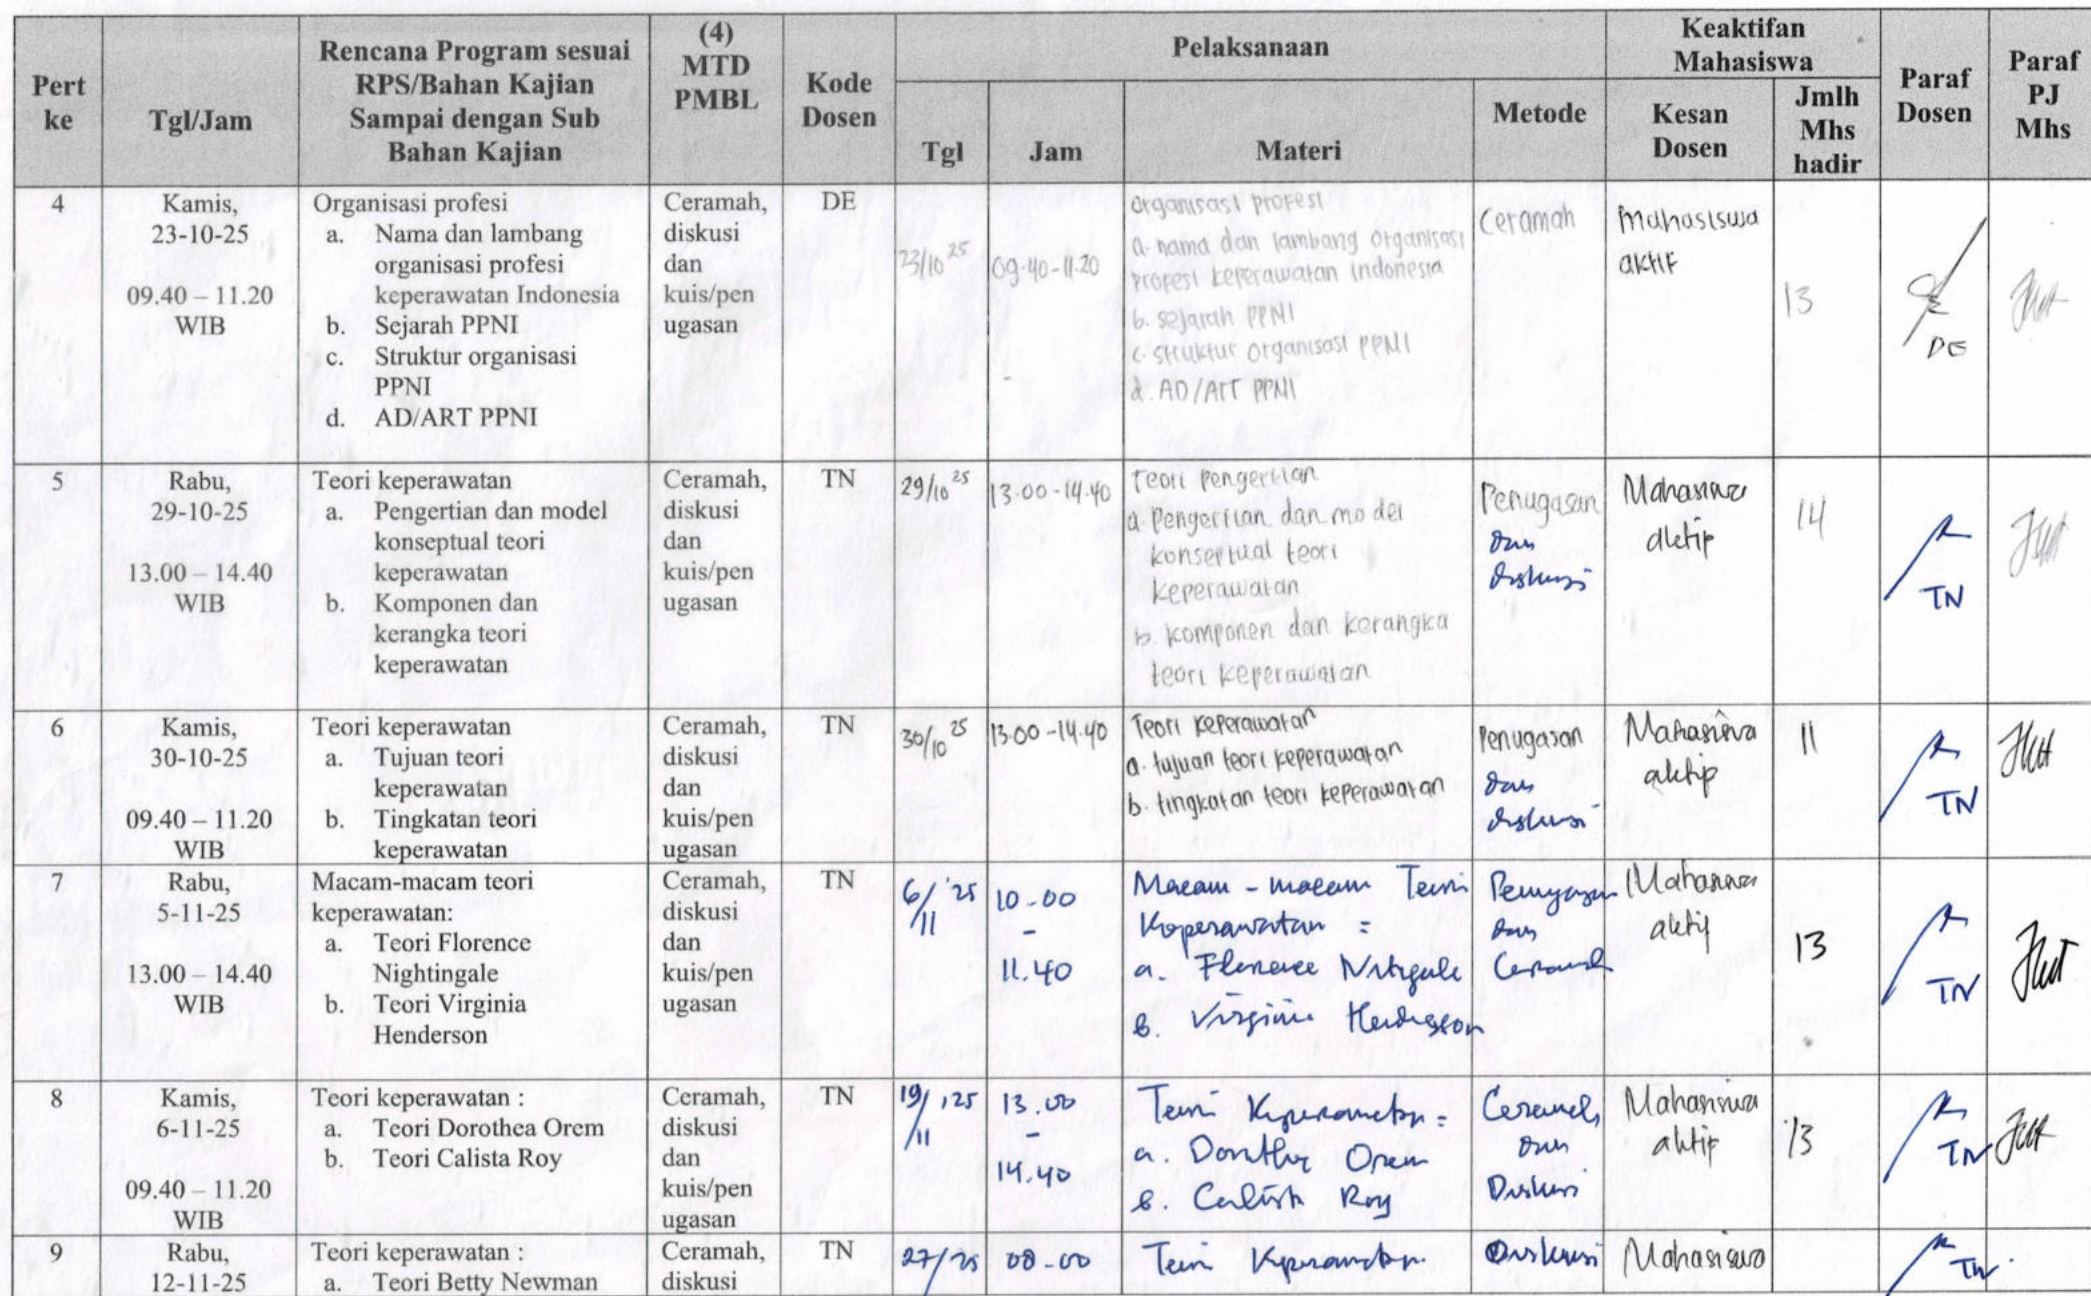 Pert ke
Tgl/Jam
Rencana Program sesuai
RPS/Bahan Kajian
Sampai dengan Sub
Bahan Kajian
(4)
MTD
PMBL
Kode
Dosen
Pelaksanaan
Tgl
Jam
Materi
Metode
Keaktifan
Mahasiswa
Kesan
Dosen
Jmlh
Mhs
hadir
Paraf
Dosen
Paraf
PJ
Mhs
4
Kamis,
23-10-25
09.40 – 11.20
WIB
Organisasi profesi
a. Nama dan lambang
organisasi profesi
keperawatan Indonesia
b. Sejarah PPNI
c. Struktur organisasi
PPNI
d. AD/ART PPNI
Ceramah,
diskusi
dan
kuis/pen
ugasan
DE
23/10 25
09.40-11.20
Organisasi profesi
a. nama dan lambang organisasi
profesi keperawatan indonesia
b. sejarah PPNI
c. struktur organisasi PPNI
d. AD/ART PPNI
Ceramah
Mahasiswa
aktif
13
DE
5
Rabu,
29-10-25
13.00 – 14.40
WIB
Teori keperawatan
a. Pengertian dan model
konseptual teori
keperawatan
b. Komponen dan
kerangka teori
keperawatan
Ceramah,
diskusi
dan
kuis/pen
ugasan
TN
29/10 25
13.00-14.40
Teori pengertian
a. Pengertian dan model
konseptual teori
keperawatan
b. komponen dan kerangka
teori keperawatan
Penugasan
dan
diskusi
Mahasiswa
aktip
14
TN
6
Kamis,
30-10-25
09.40 – 11.20
WIB
Teori keperawatan
a. Tujuan teori
keperawatan
b. Tingkatan teori
keperawatan
Ceramah,
diskusi
dan
kuis/pen
ugasan
TN
30/10 25
13.00-14.40
Teori keperawatan
a. tujuan teori keperawatan
b. tingkatan teori keperawatan
Penugasan
dan
diskusi
Mahasiswa
aktip
11
TN
7
Rabu,
5-11-25
13.00 – 14.40
WIB
Macam-macam teori
keperawatan:
a. Teori Florence
Nightingale
b. Teori Virginia
Henderson
Ceramah,
diskusi
dan
kuis/pen
ugasan
TN
6/11 '25
10.00
-
11.40
Macam-macam Teori
Keperawatan =
a. Florence
b. Virginia Henderson
Penugasan
dan
Ceramah
Mahasiswa
aktif
13
TN
8
Kamis,
6-11-25
09.40 – 11.20
WIB
Teori keperawatan :
a. Teori Dorothea Orem
b. Teori Calista Roy
Ceramah,
diskusi
dan
kuis/pen
ugasan
TN
19/11 '25
13.00
-
14.40
Teori Keperawatan =
a. Dorothy Orem
b. Calista Roy
Ceramah
dan
Diskusi
Mahasiswa
aktip
13
TN
9
Rabu,
12-11-25
Teori keperawatan :
a. Teori Betty Newman
Ceramah,
diskusi
TN
27/25
08.00
Teori Keperawatan
Diskusi
Mahasiswa
TN